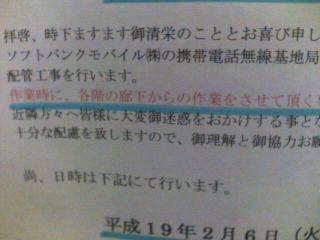 拝啓、時下ますます御清栄のこととお喜び申し
ソフトバンクモバイル㈱の携帯電話無線基地局
配管工事を行います。
作業時に、各階の廊下からの作業をさせて頂く
近隣方々へ皆様に大変御迷惑をおかけする事と
十分な配慮を致しますので、御理解と御協力お
尚、日時は下記にて行います。
平成19年2月6日（火